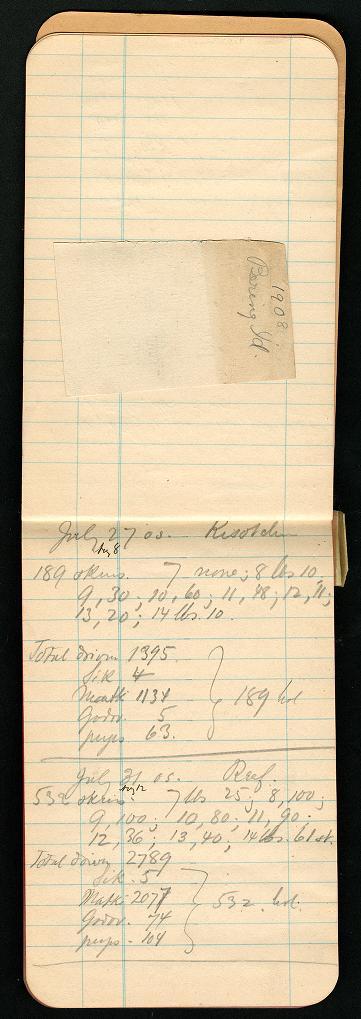 1908
Bering Id.
July 27 os. Kisotchn
Aug 8
189 skins. 7 none; 8 lbs 10,
9, 30; 10, 60; 11, 48; 12, 11;
13, 20; 14 lbs. 10.
Total driven 1395.
Sik 4
Matk 1134
Godov. 5
pups 63.
189 hol
July 31 os. Reef.
Aug 12
532 skins. 7 lbs 25; 8, 100;
9, 100; 10, 80; 11, 90.
12, 36; 13, 40; 14 lbs. 61 st.
Total down 2789
Sik. 5
Matk 2077
Godov. 74
pups - 104
532 hol.